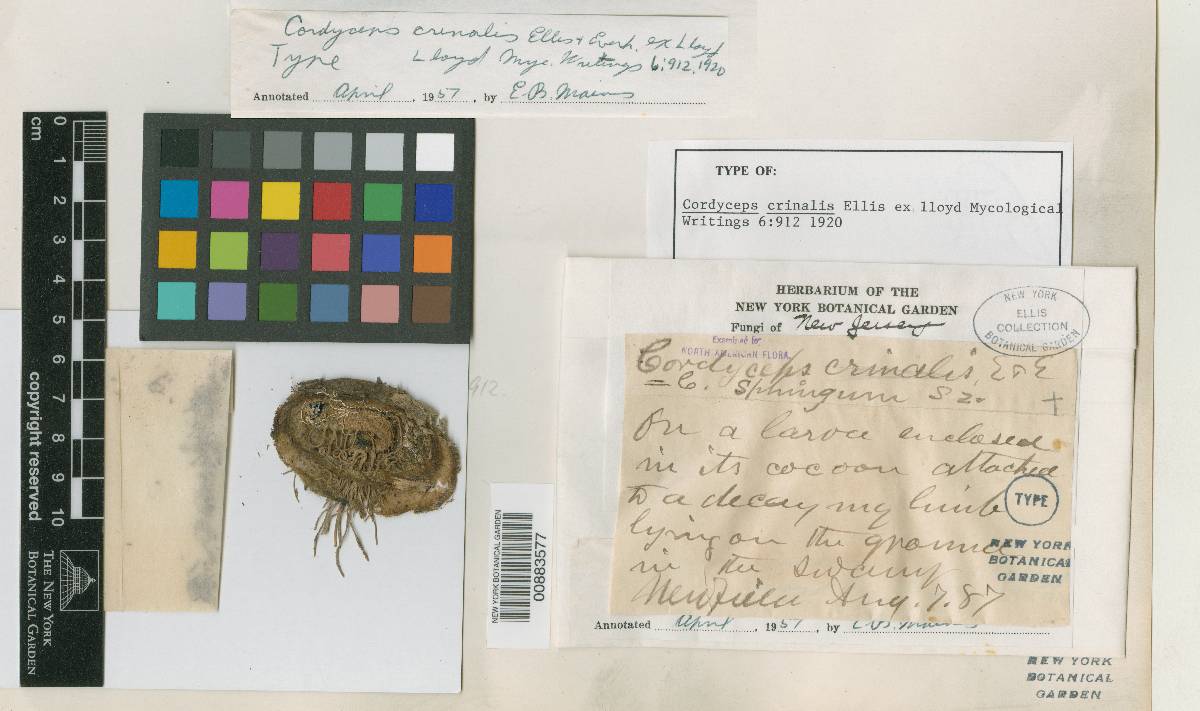 Cordyceps crinalis Ellis & Everh. ex Lloyd
Type Lloyd Myc. Writings 6:912, 1920
Annotated April, 1957, by E.B. Mains
cm
0
1
2
3
4
5
6
7
8
9
10
copyright reserved
THE NEW YORK
BOTANICAL GARDEN
TYPE OF:
Cordyceps crinalis Ellis ex lloyd Mycological
Writings 6:912 1920
912.
HERBARIUM OF THE
NEW YORK BOTANICAL GARDEN
Fungi of New Jersey
NEW YORK
ELLIS
COLLECTION
BOTANICAL GARDEN
Examined for
NORTH AMERICAN FLORA
Cordyceps crinalis, E & E
= C. Sphingum Sz. +
On a larva enclosed
in its cocoon attached
to a decaying limb
lying on the ground
in the swamp
Newfield Aug. 7. 87
TYPE
NEW YORK
BOTANICAL
GARDEN
Annotated April, 1957, by E.B. Mains
NEW YORK BOTANICAL GARDEN
00883577
NEW YORK
BOTANICAL
GARDEN